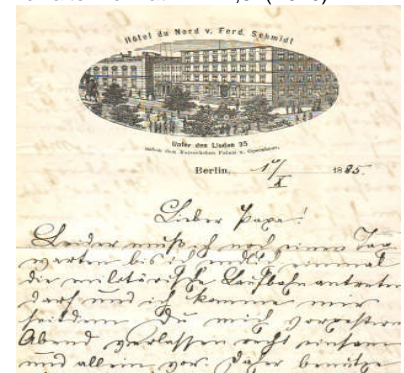 Hôtel du Nord v. Ferd. Schmidt
Unter den Linden 35
neben dem Kaiserlichen Palais u. Opernhaus.
Berlin, 10/X 1885.
Lieber Papa!
Leider muß ich noch einen Tag
warten bis ich endlich einmal
die militärische Laufbahn antreten
darf und ich komme mir
seitdem Du mich vorgestern
Abend verlassen recht einsam
und allein vor. Daher benütze